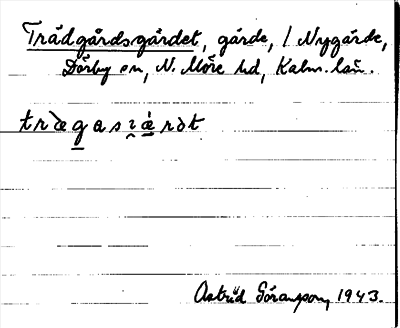 Trädgårdsgärdet, gärde, / Nygärde,
Dörby sn, N. Möre hd, Kalm. län.
trägasɪ̯ä́rdt
Astrid Göransson, 1943.